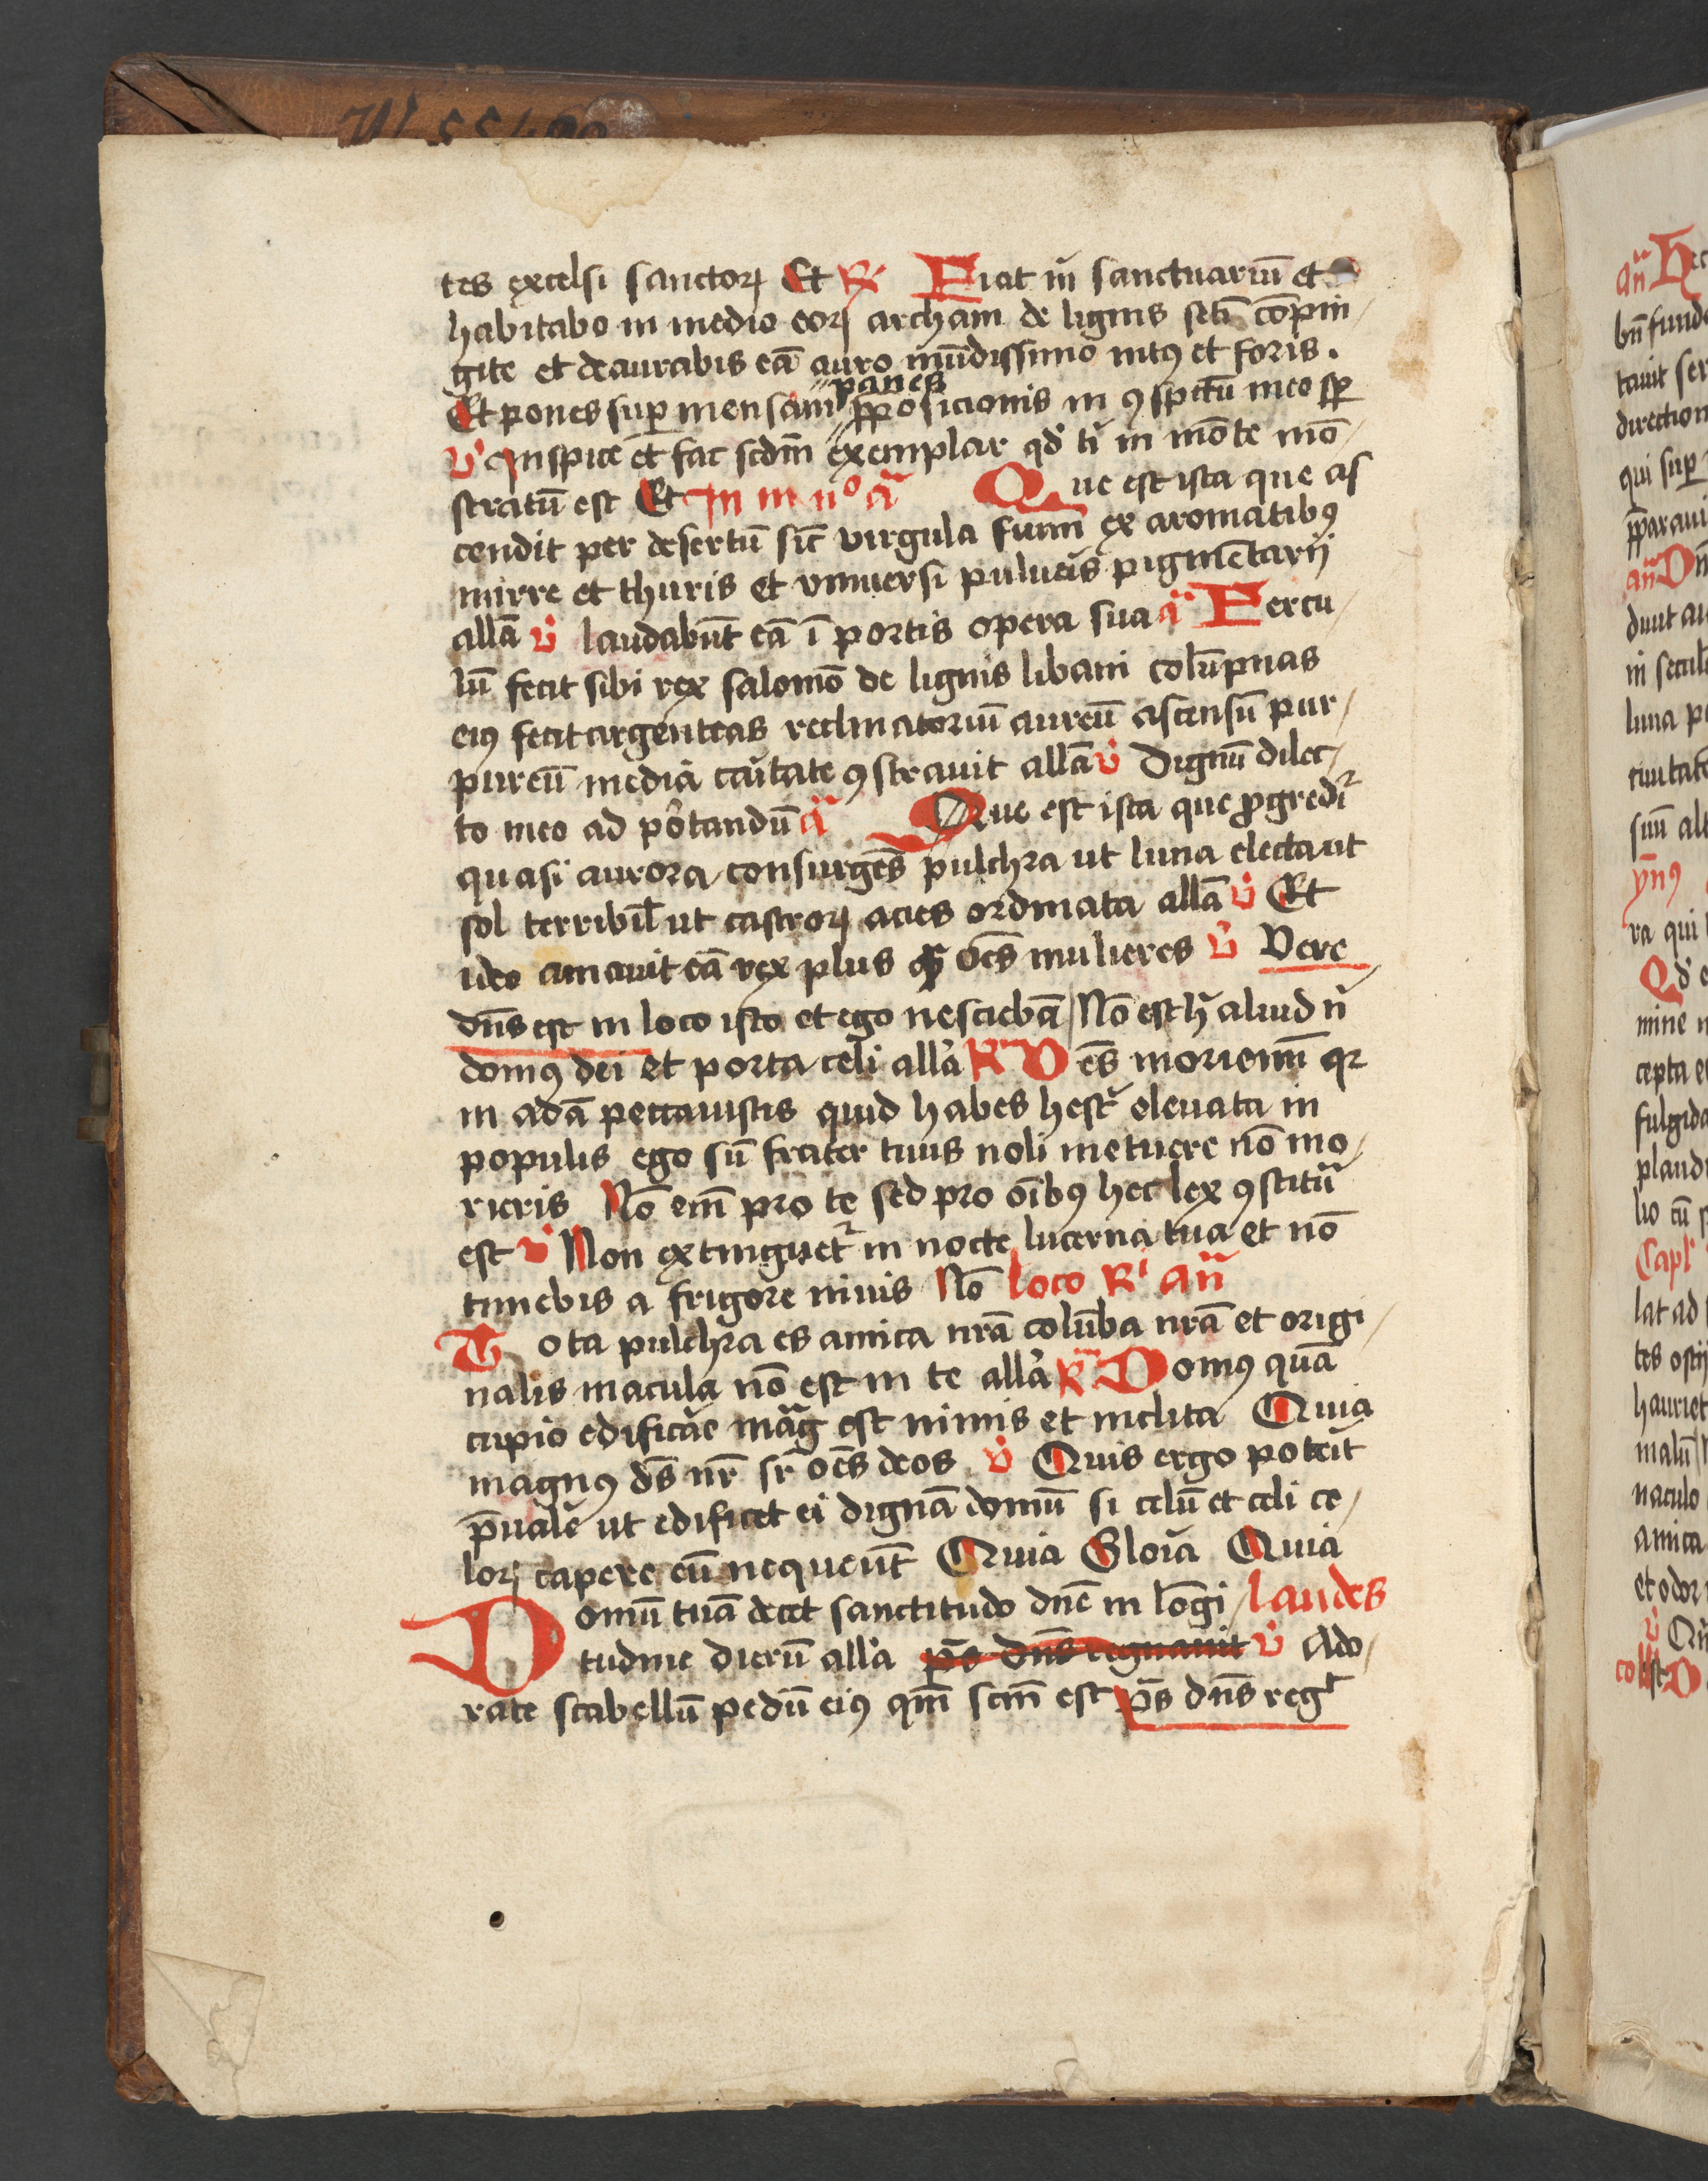 tes excelsi sanctoꝝ Et R⁊ Fiat m̄ sanctuariū et
habitabo in medio eoꝝ archam de lignis setī cōpin/
gite et deaurabis eā auro mūdissimo intꝰ et foris.
panes
Et pones suꝑ mensam ꝓposicionis in ꝯspctū meo sꝑ
v̊ Inspice et fac scdm̄ exemplar qd̛ ti̛ in mōte mō/
stratū est Et In iii n° a̅ Que est ista que as
cendit per desertū sic̄ virgula fumi ex aromatibꝰ
mirre et thuris et vniuersi pulueis̛ pigmētarij
allā v̊ laudabūt eā ī portis opera sua a̅ Fercu/
lū fecit sibi rex salomō de lignis libani colūpnas
eiꝰ fecit argenteas reclinatoriū aureū ascensū pur/
pureū media caritate ꝯstrauit allā v̊ Dignū dilec/
to meo ad portandū a̅ Que est ista que ꝓgredit̛
quasi aurora consurgēs pulchra ut luna electa ut
sol terribil̄ ut castroꝝ acies ordinata allā v̊ Et
ideo amauit eā rex plus ꝙ̄ oēs mulieres v̊ Vere
dn̄s est in loco isto et ego nesciebā Nō est h̛ aliud n̛
domꝰ dei et porta celi alla̛ R⁊ Oēs moriemi̅ qr
in adā peccauistis quid habes hest̛ eleuata in
populis ego sū frater tuus noli metuere nō mo/
rieris Nō em̄ pro te sed pro oībꝰ hec lex ꝯstituta̛
est v̊ Non extinguet̛ in nocte lucerna tua et nō
timebis a frigore niuis Nō loco R⁊ an̄
Tota pulchra es amica nr̄a colūba nr̄a et origi/
nalis macula nō est in te alla̛ R⁊ Domꝰ quā
cupio edificāe mag̅ est nimis et inclita Quia
magnꝰ ds̄ nr̄ sr̄ oēs deos v̊ Quis ergo poteit̛
p̄uale̅ ut edificet ei dignā domū si celū et celi ce/
loꝝ capere eū nequeūt Quia Gloia̛ Quia
Domū tuā decet sanctitudo dn̄e in lōgi/ laudes
tudine dierū alla̛ p̄s dn̄s regnauit v̊ Ado/
rate scabellū pedū eiꝰ qm̄ scm̄ est p̄s dn̄s reg̛